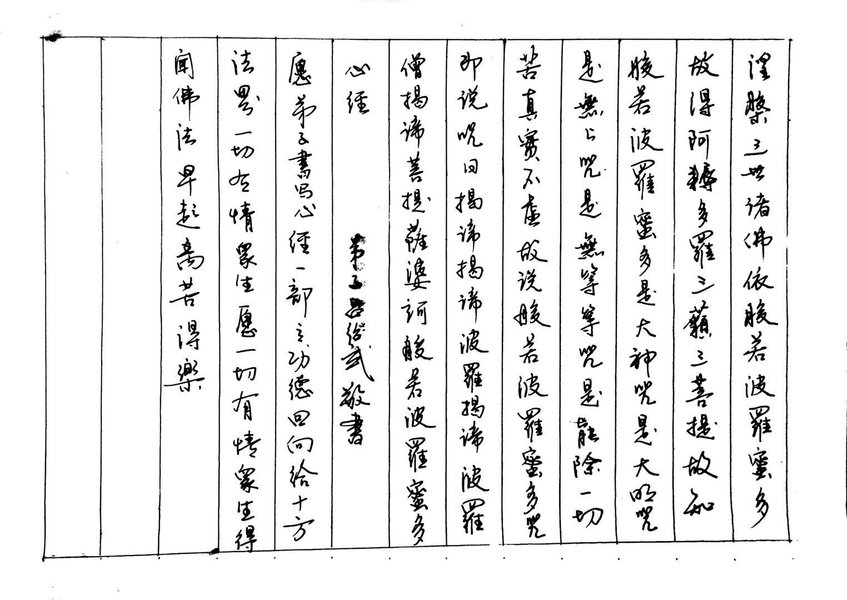 涅槃三世诸佛依般若波羅蜜多
故得阿耨多羅三藐三菩提故知
般若波羅蜜多是大神咒是大明咒
是無上咒是無等等咒是能除一切
苦真實不虚故说般若波羅蜜多咒
即说咒曰揭谛揭谛波羅揭谛波羅
僧揭谛菩提薩婆訶般若波羅蜜多
心經 弟子 武敬書
愿弟子書写心经一部之功德回向给十方
法界一切有情眾生愿一切有情眾生得
闻佛法早超离苦得樂